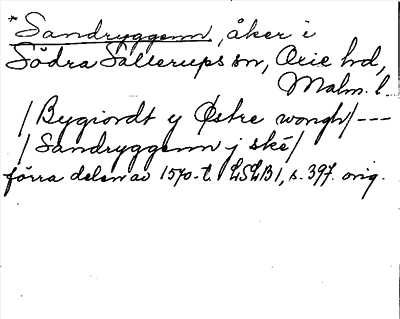 *Sandryggenn, åker i
Södra Sallerups sn, Oxie hd,
Malm. l.
/Bygiordt y Østre wongh/---
/Sandryggenn j ské/
förra delen av 1570-t. LSLB1, s. 397. orig.